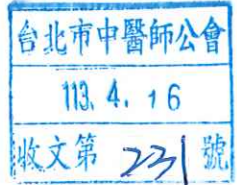 台北市中醫師公會
113. 4. 16
收文第 231 號